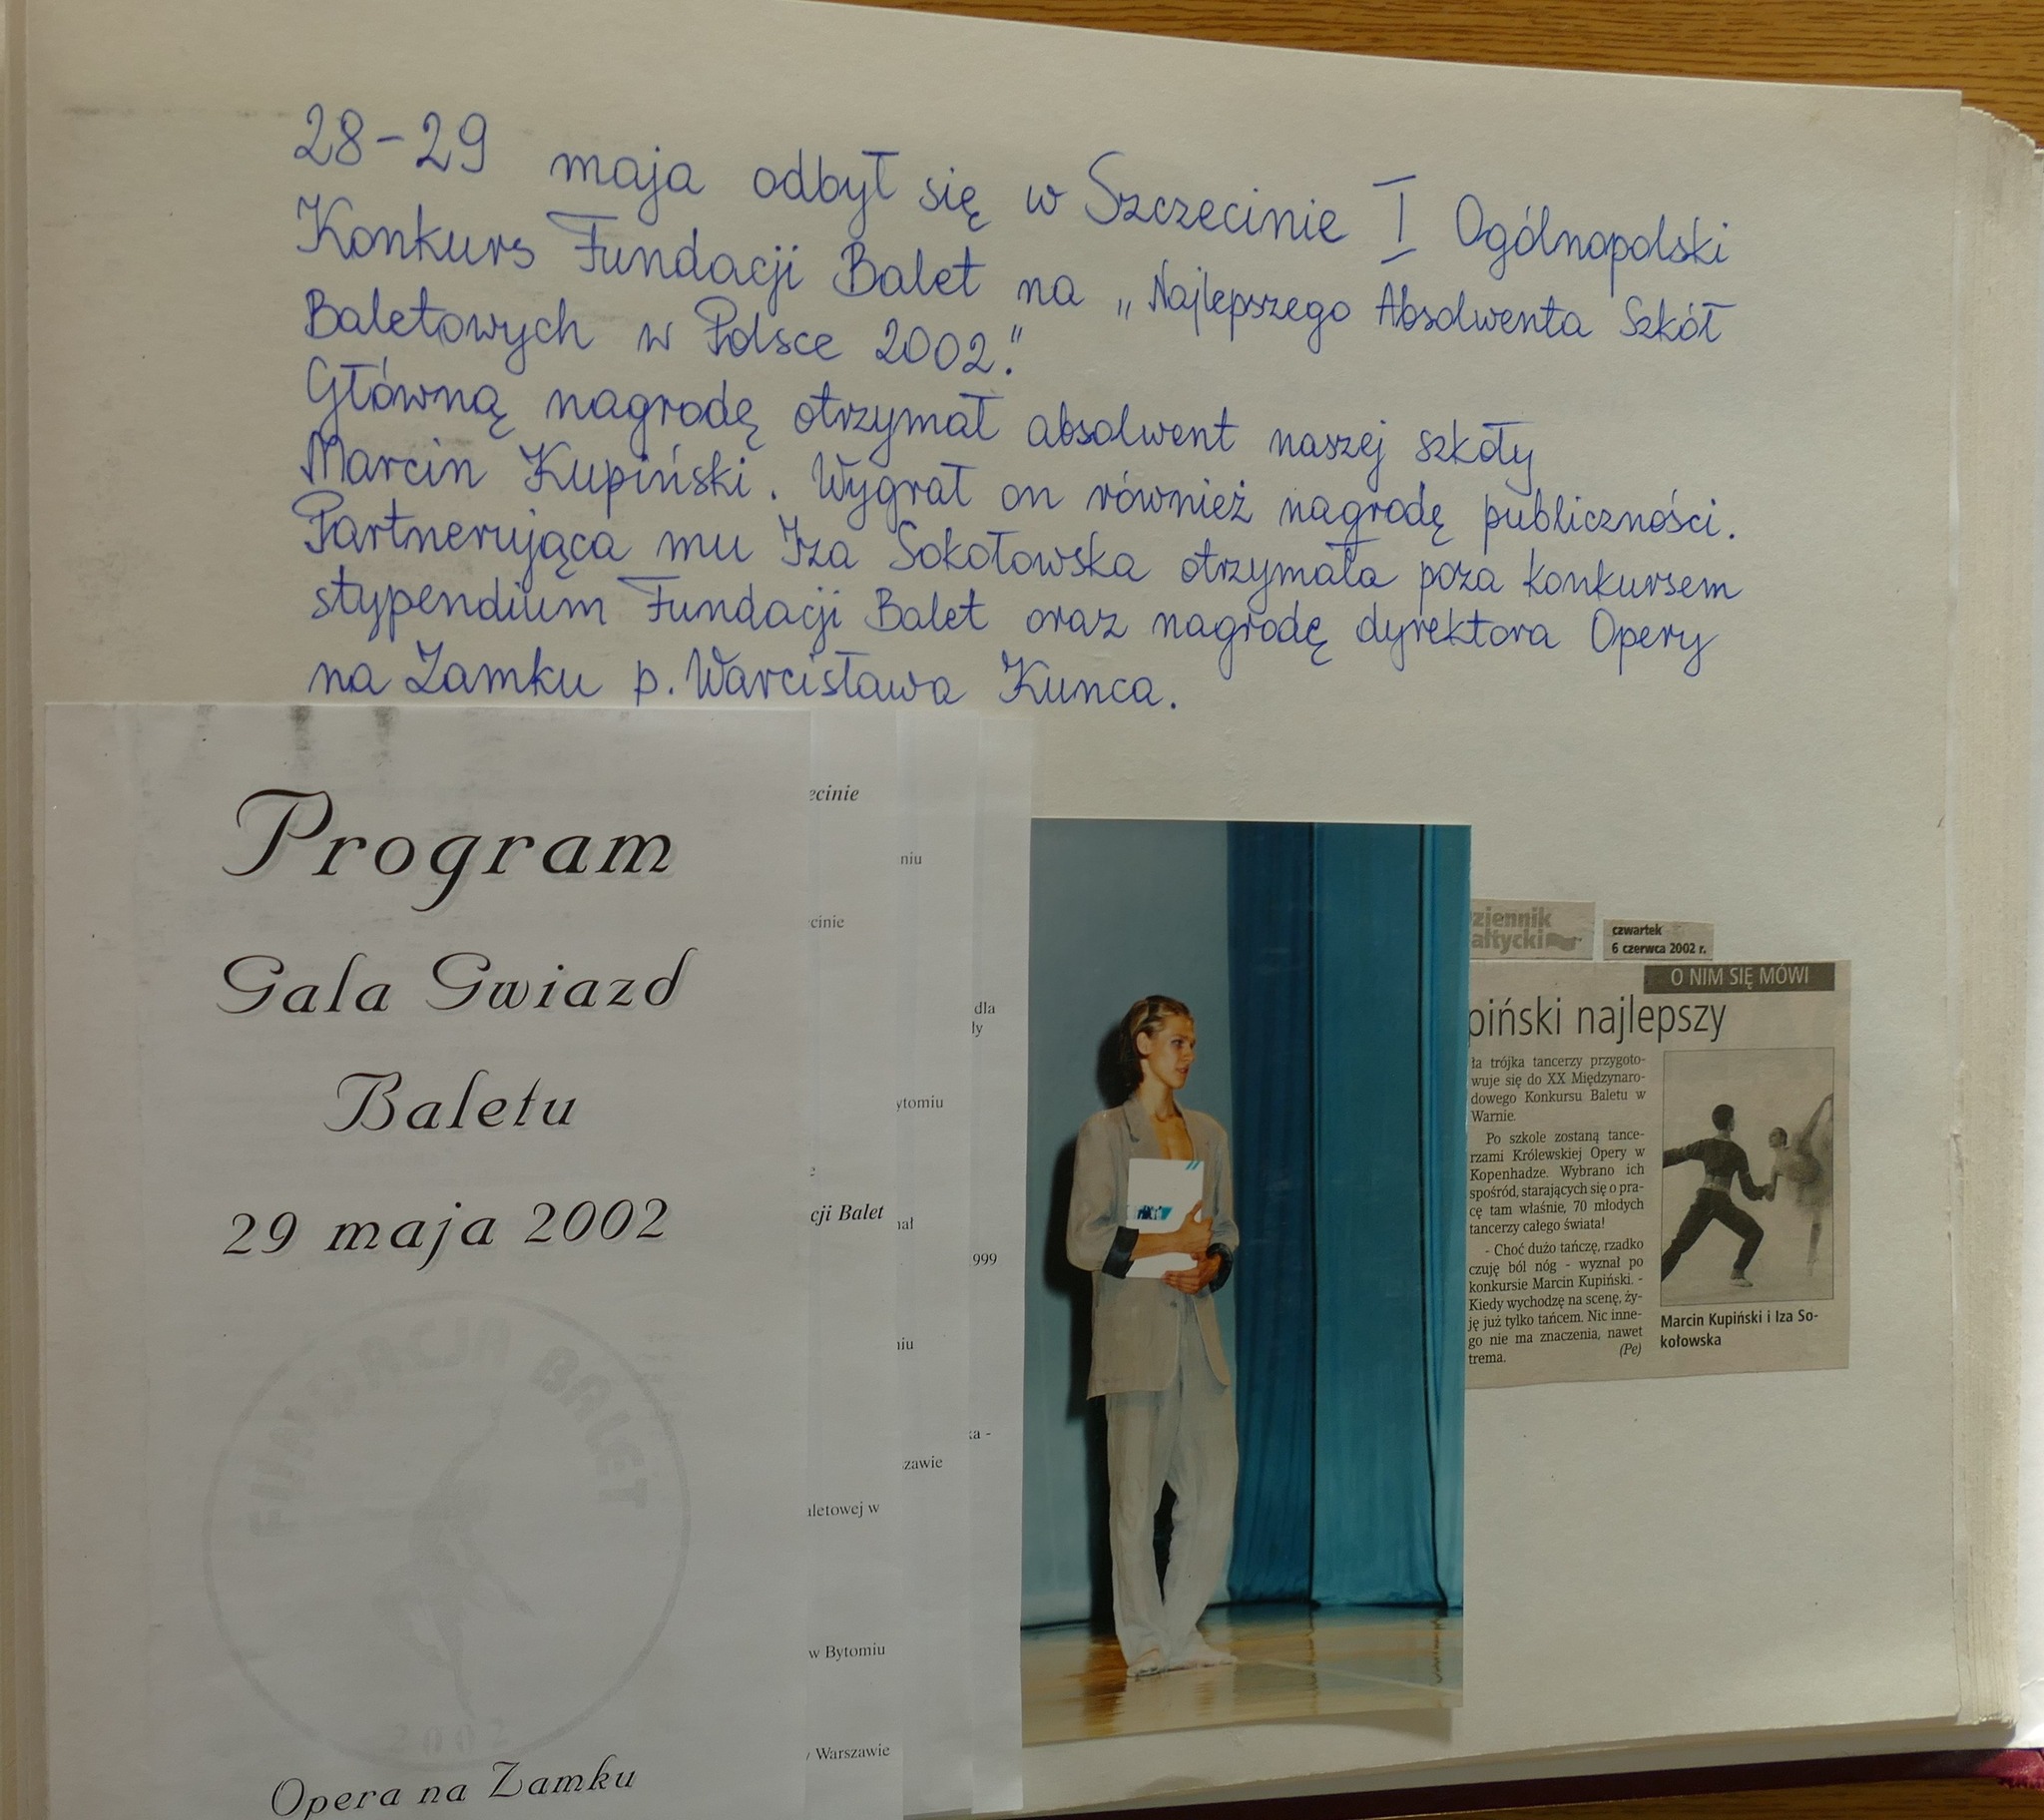 28-29 maja odbył się w Szczecinie I Ogólnopolski
Konkurs Fundacji Balet na „Najlepszego Absolwenta Szkół
Baletowych w Polsce 2002."
Główną nagrodę otrzymał absolwent naszej szkoły
Marcin Kupiński. Wygrał on również nagrodę publiczności.
Partnerująca mu Iza Sokołowska otrzymała poza konkursem
stypendium Fundacji Balet oraz nagrodę dyrektora Opery
na Zamku p. Warcisława Kunca.
Program
Gala Gwiazd
Baletu
29 maja 2002
FUNDACJA BALET
2002
Opera na Zamku
ecinie
cinie
cji Balet
aletowej w
w Bytomiu
Warszawie
niu
ytomiu
nał
niu
zawie
dla
ly
999
ka -
ziennik
ałtycki
czwartek
6 czerwca 2002 r.
O NIM SIĘ MÓWI
piński najlepszy
ła trójka tancerzy przygoto-
wuje się do XX Międzynaro-
dowego Konkursu Baletu w
Warnie.
Po szkole zostaną tance-
rzami Królewskiej Opery w
Kopenhadze. Wybrano ich
spośród, starających się o pra-
cę tam właśnie, 70 młodych
tancerzy całego świata!
- Choć dużo tańczę, rzadko
czuję ból nóg - wyznał po
konkursie Marcin Kupiński. -
Kiedy wychodzę na scenę, ży-
ję już tylko tańcem. Nic inne-
go nie ma znaczenia, nawet
trema. (Pe)
Marcin Kupiński i Iza So-
kołowska